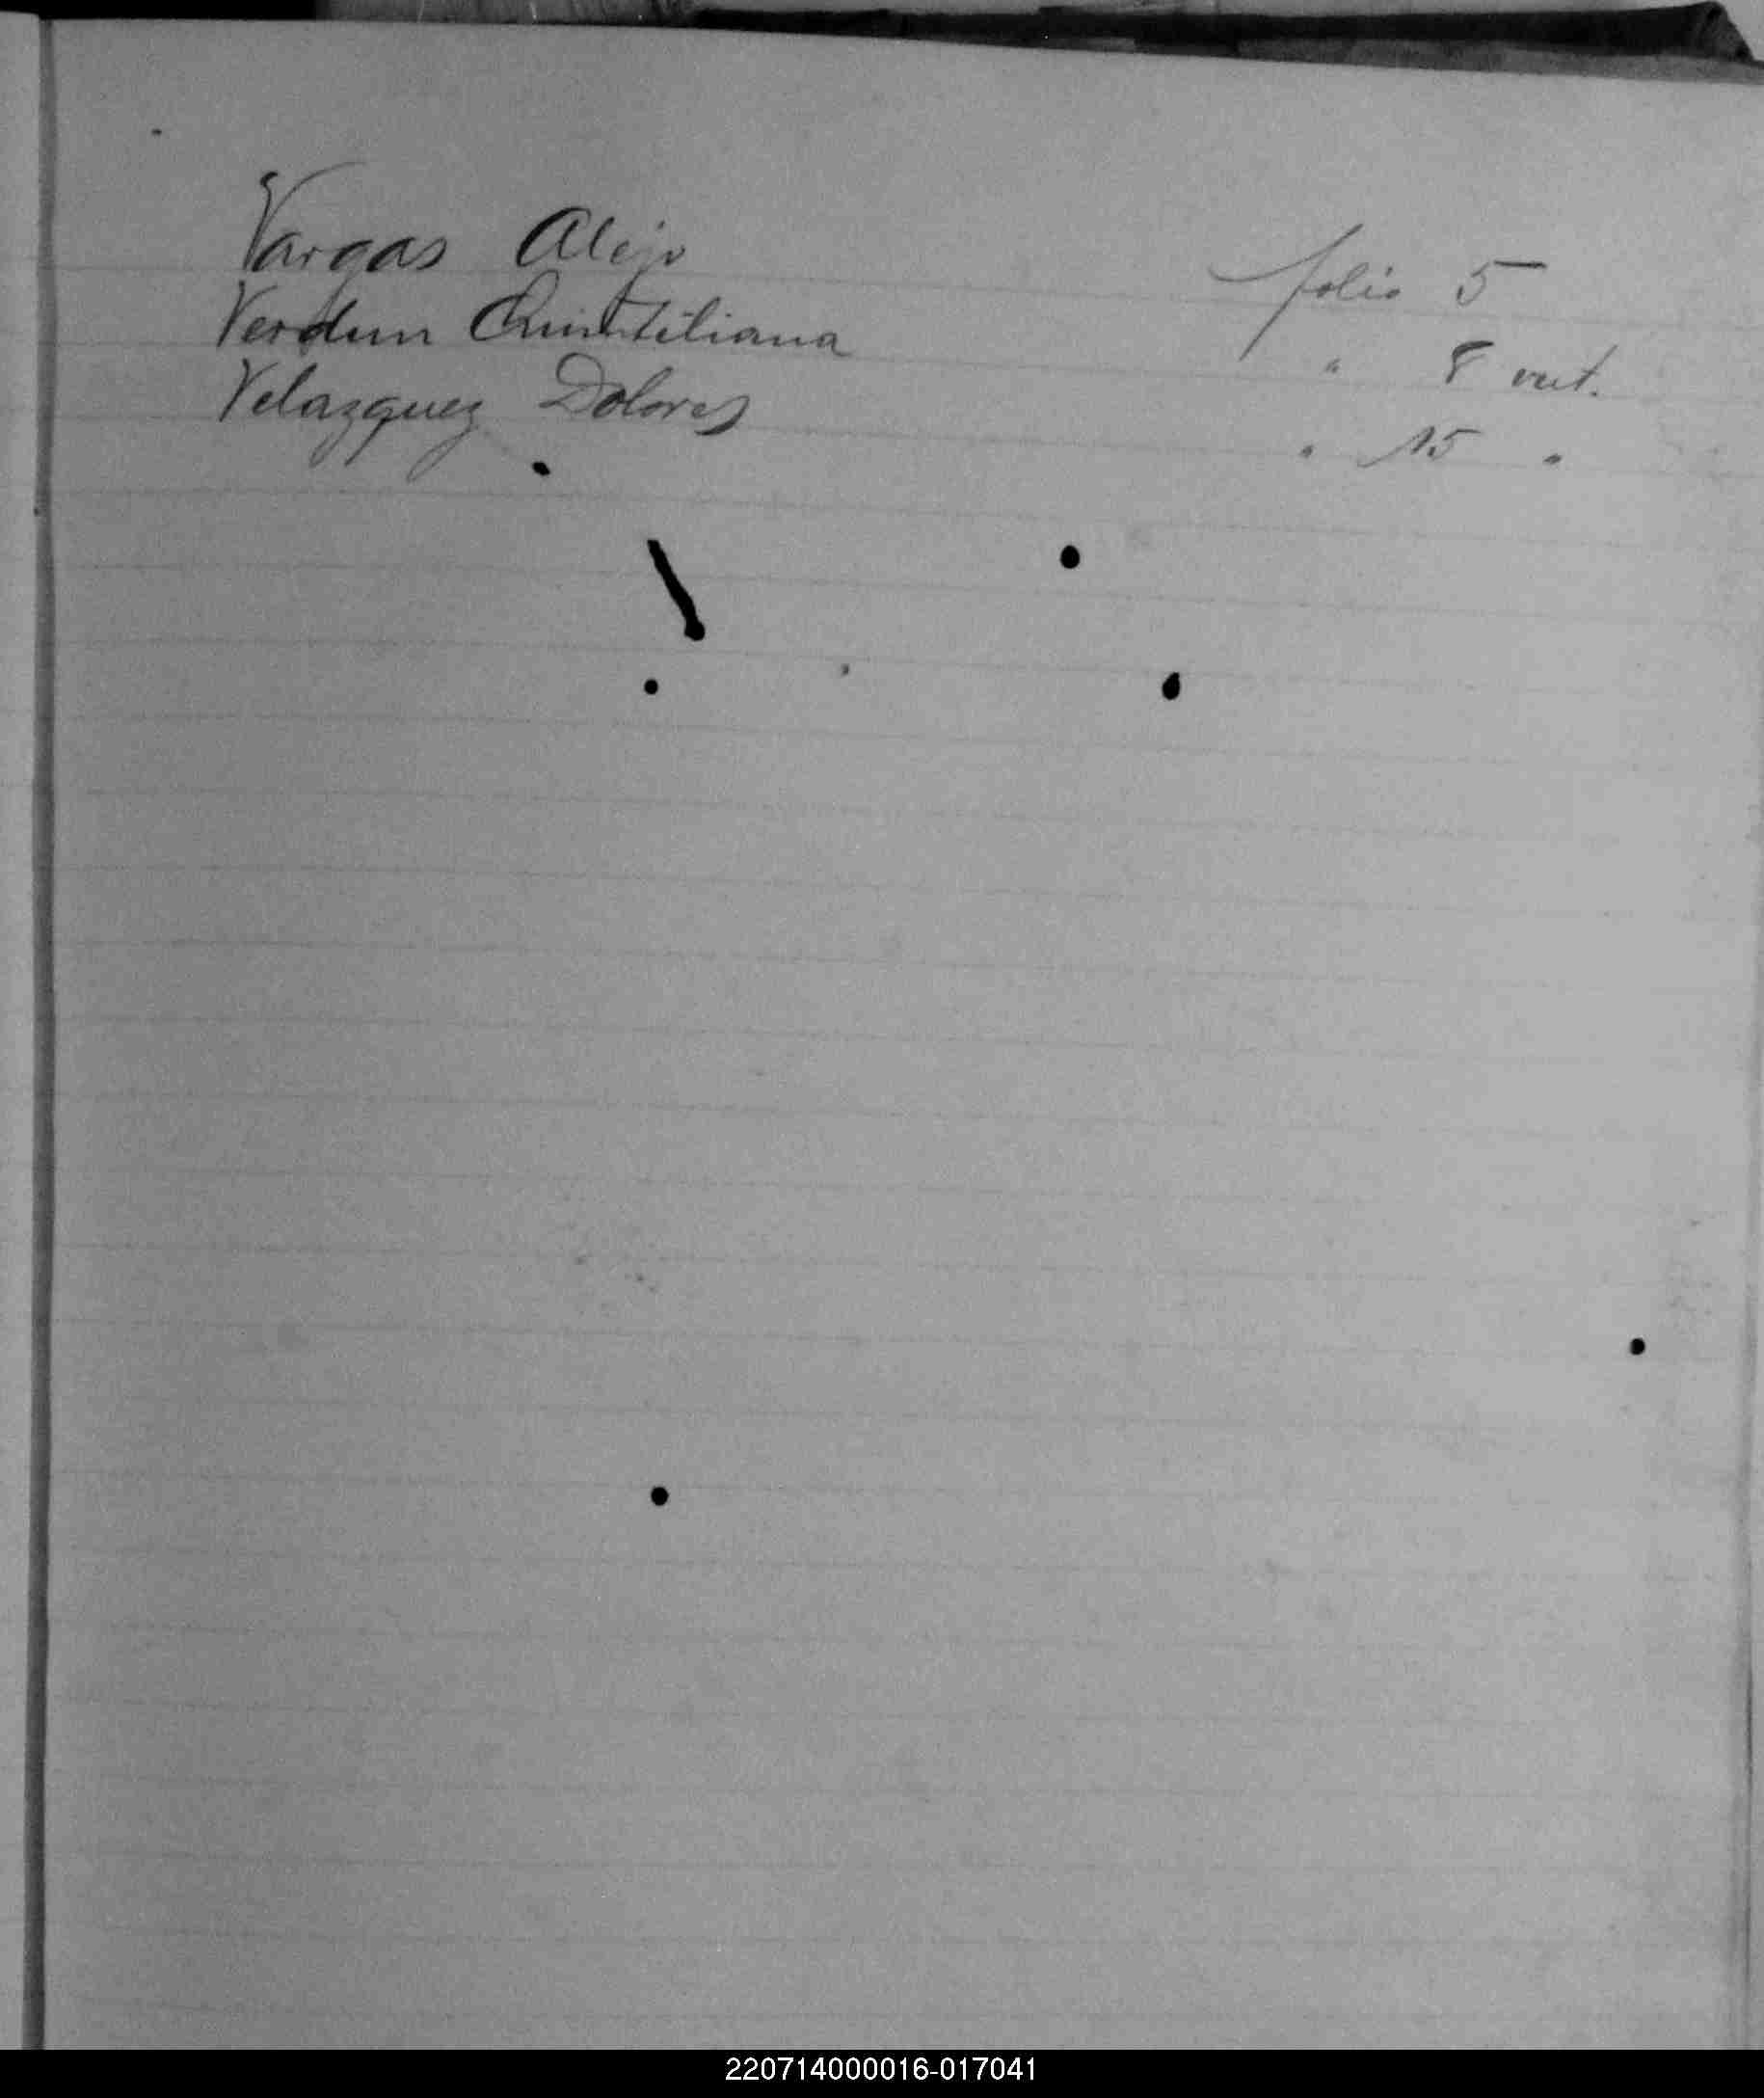 Vargas Alejo folio 5
Verdun Quintiliana " 8 vut.
Velazquez Dolores " 15 "
220714000016-017041